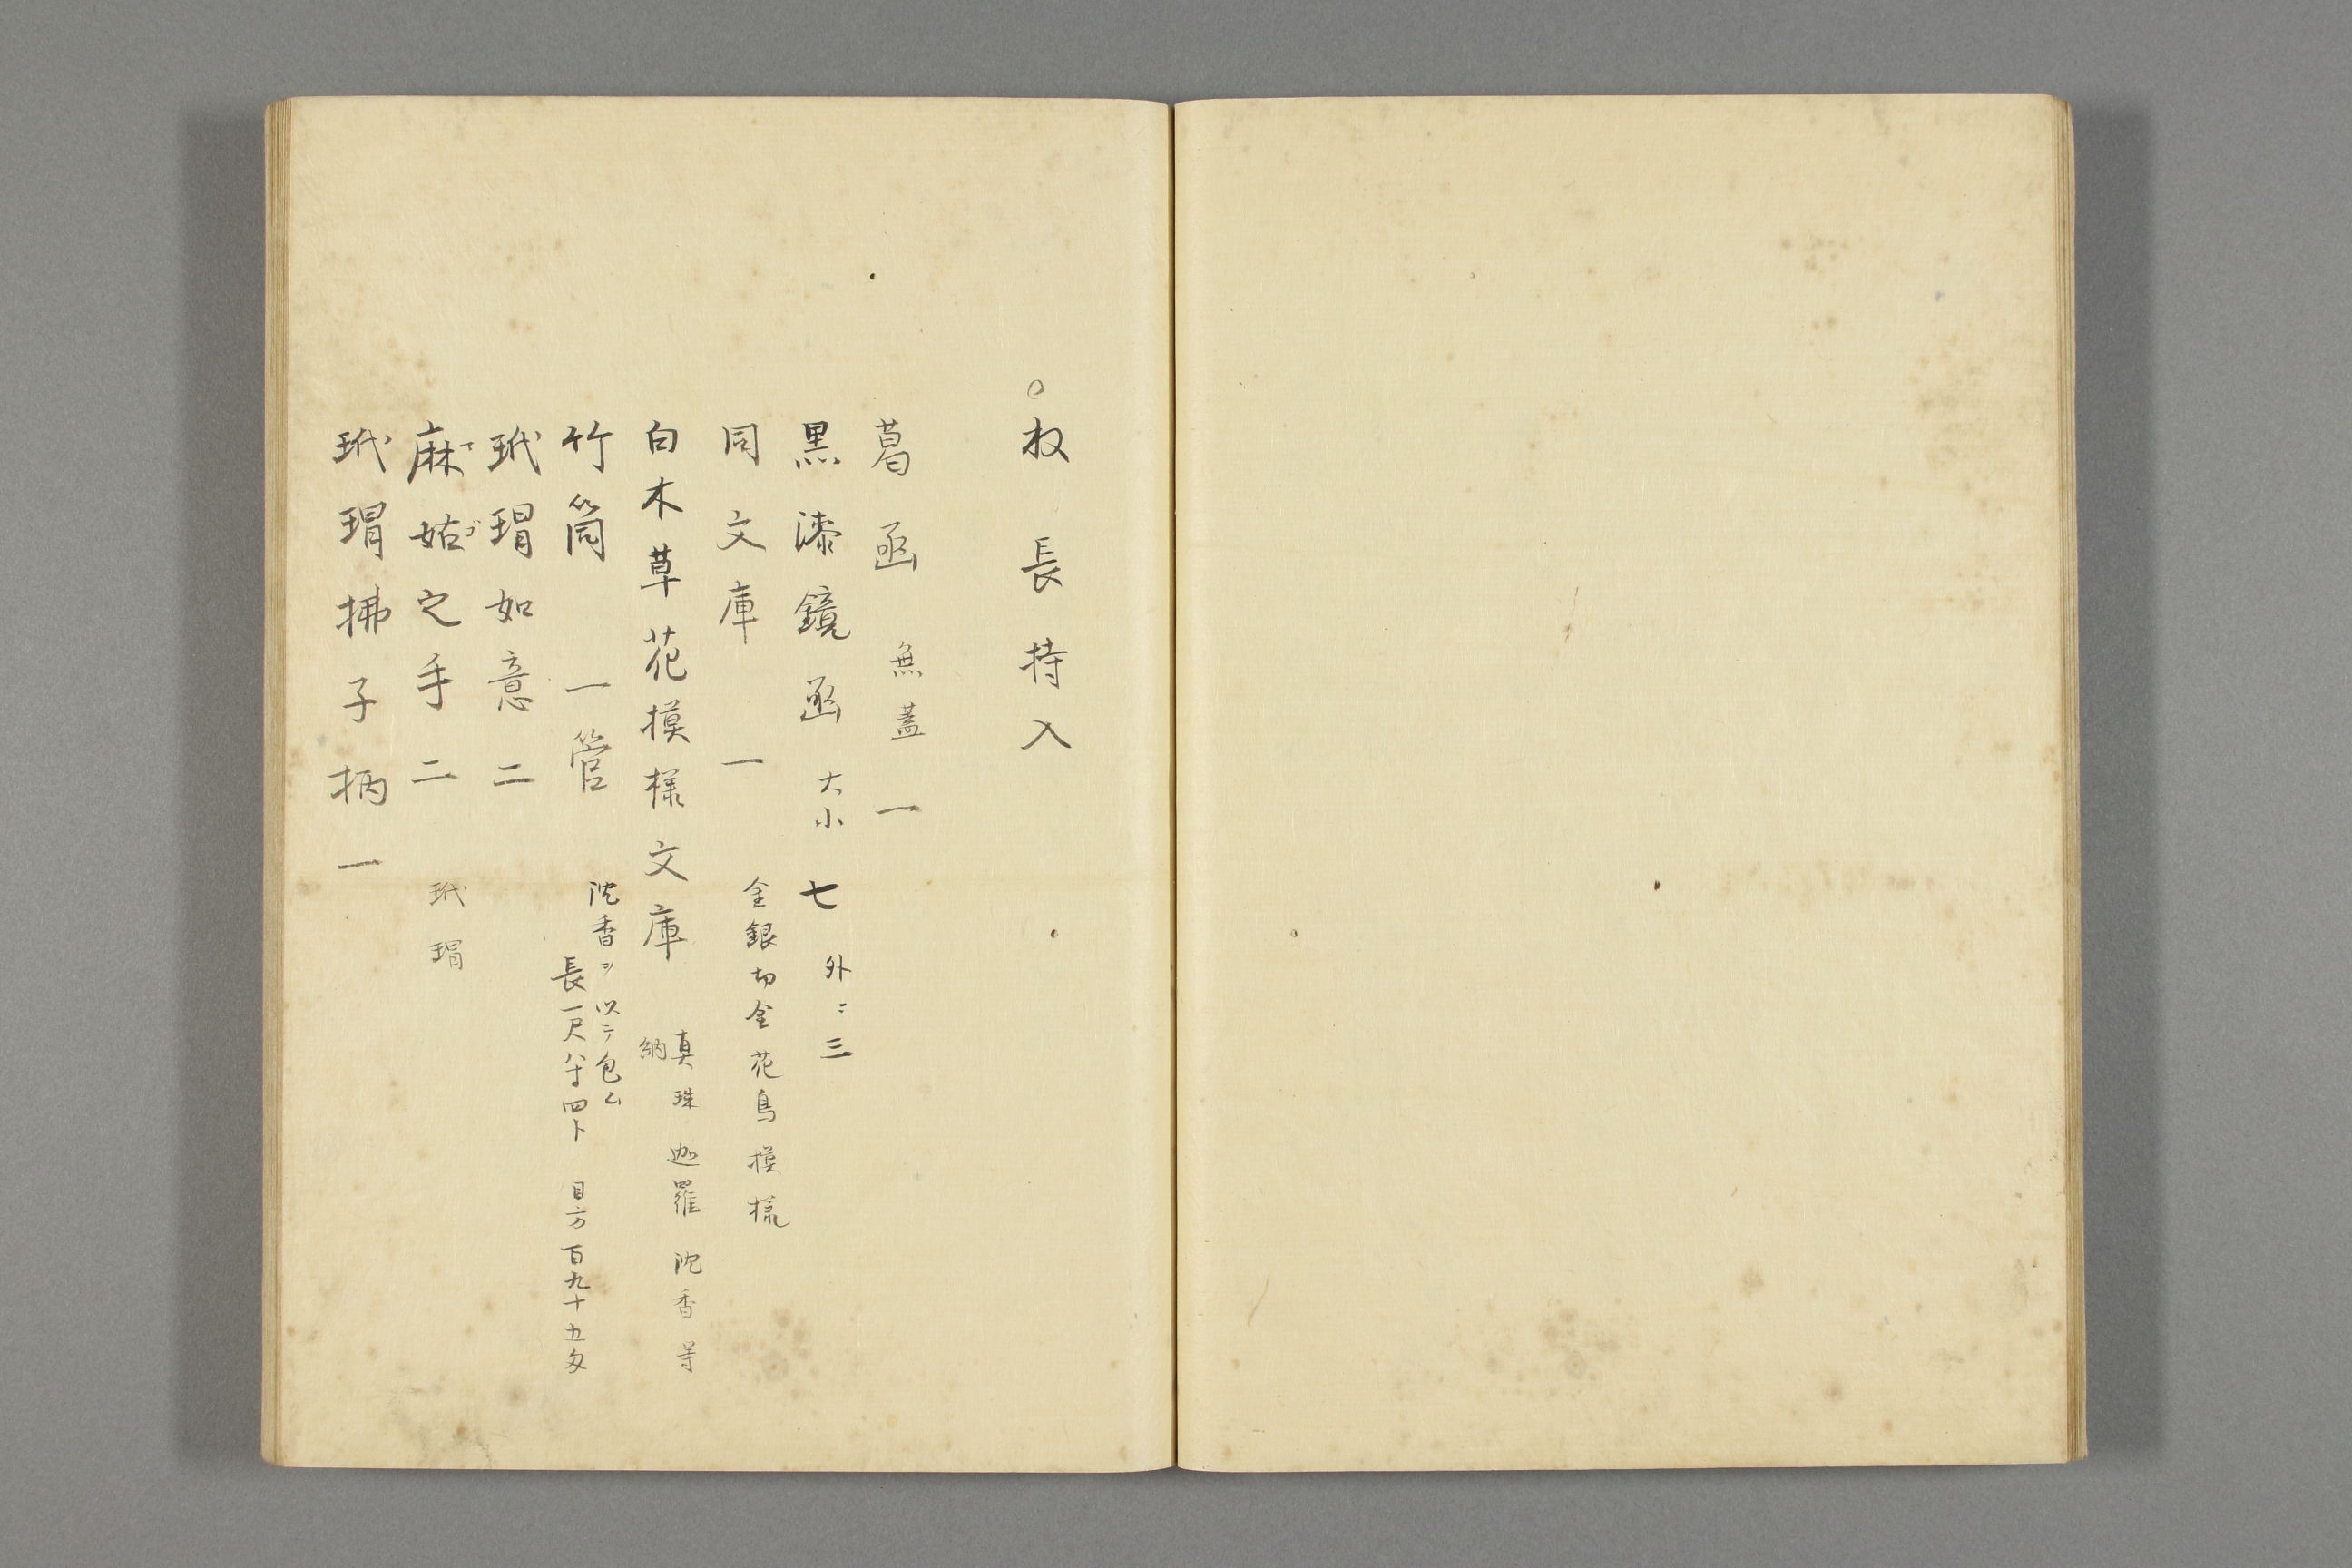 ○杈長持入
葛函 無蓋 一
黒漆鏡函 大小 七 外ニ三
同文庫 一 金銀切金花鳥模様
白木草花模様文庫 真珠迦羅沈香等
納
竹筒 一管 沈香ヲ以テ包ム
長一尺八寸四卜 目方百九十五匁
玳瑁如意二
麻姑之手二 玳瑁
玳瑁拂子柄一